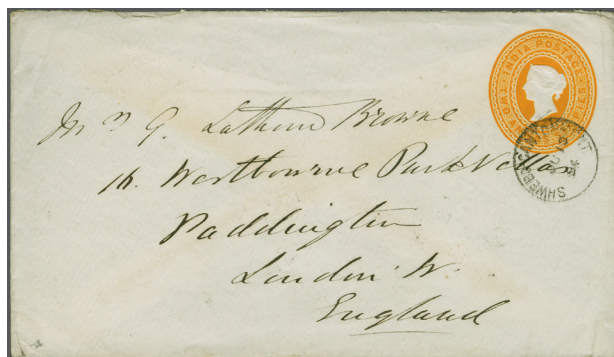 INDIA POSTAGE
Mrs G. Lathom Browne
16. Westbourne Park Villas
Paddington
London. W.
England